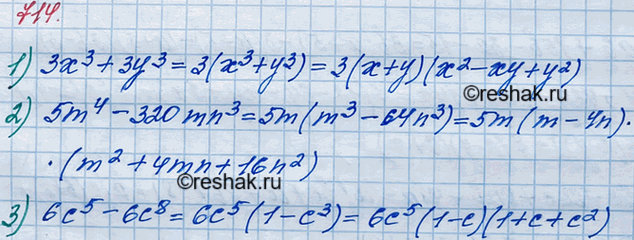 714.
1) 3x³ + 3y³ = 3(x³ + y³) = 3(x + y)(x² - xy + y²)
©reshak.ru
2) 5m⁴ - 320mn³ = 5m(m³ - 64n³) = 5m(m - 4n) ·
· (m² + 4mn + 16n²)
©reshak.ru
3) 6c⁵ - 6c⁸ = 6c⁵(1 - c³) = 6c⁵(1 - c)(1 + c + c²)